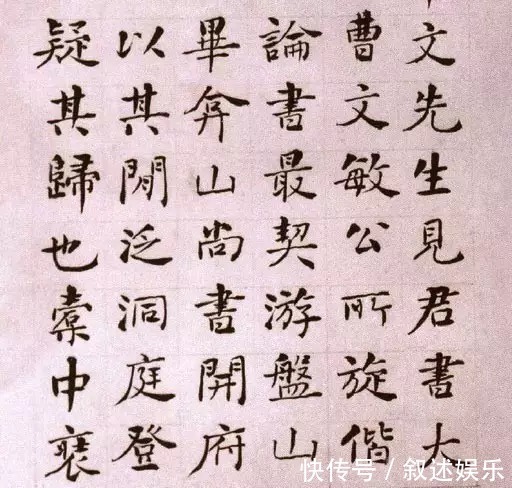 文先生見君書大
曹文敏公所旋偕
論書最契游盤山
畢弇山尚書開府
以其閒泛洞庭登
疑其歸也橐中裹
快传号/叙述娱乐